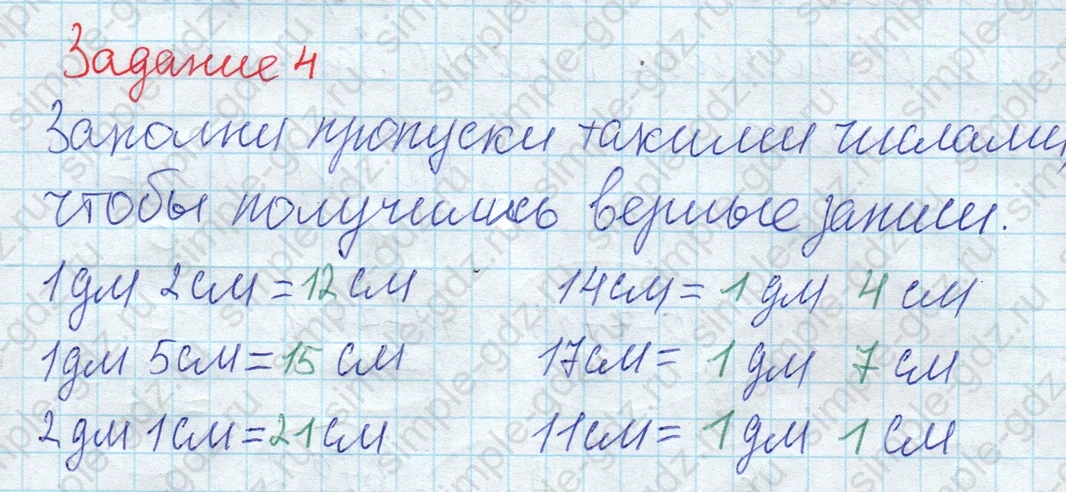 Задание 4
Заполни пропуски такими числами,
чтобы получились верные записи.
1 дм 2 см = 12 см 14 см = 1 дм 4 см
1 дм 5 см = 15 см 17 см = 1 дм 7 см
2 дм 1 см = 21 см 11 см = 1 дм 1 см
simple-gdz.ru